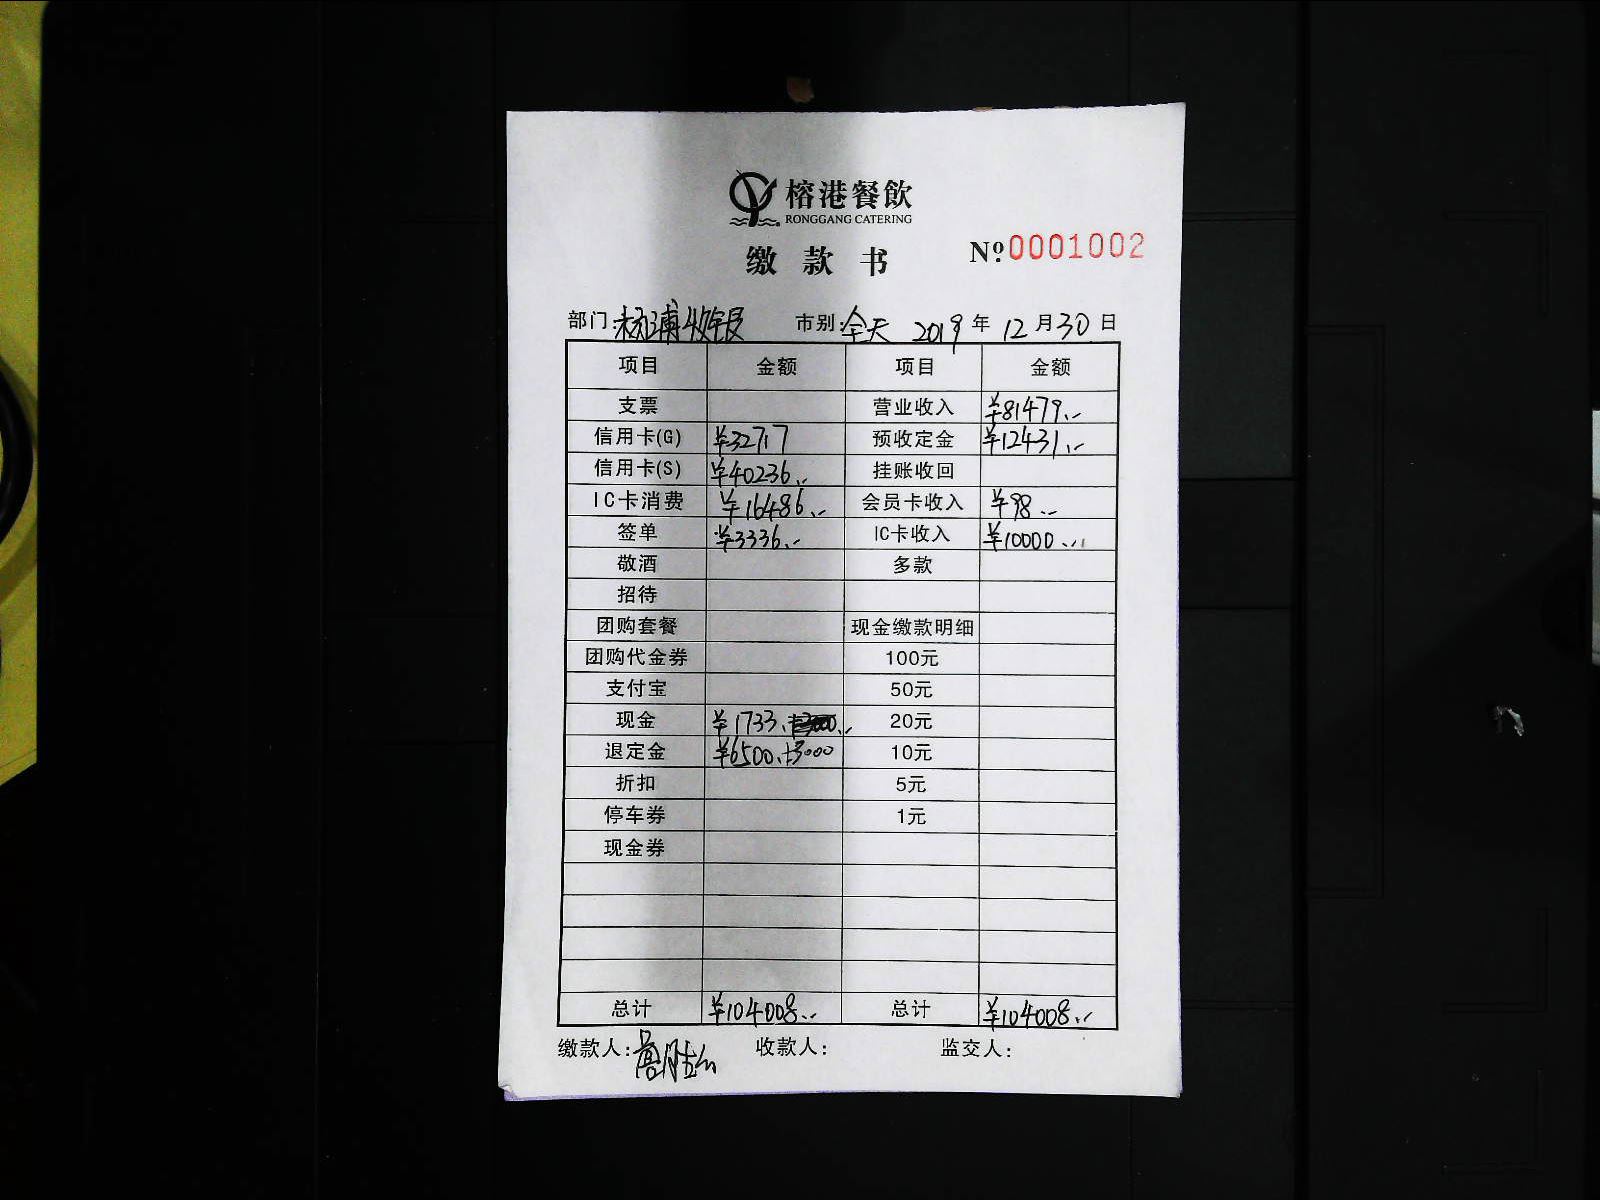 榕港餐飲
RONGGANG CATERING
缴款书
№0001002
部门:杨浦收银 市别:全天 2019年12月30日
项目 金额 项目 金额
支票 营业收入 ¥81479.-
信用卡(G) ¥32717 预收定金 ¥12431.-
信用卡(S) ¥40236.- 挂账收回
IC卡消费 ¥16486.- 会员卡收入 ¥98.-
签单 ¥3336.- IC卡收入 ¥10000.-
敬酒 多款
招待
团购套餐 现金缴款明细
团购代金券 100元
支付宝 50元
现金 ¥1733. 20元
退定金 ¥6500.+3000 10元
折扣 5元
停车券 1元
现金券
总计 ¥104008.- 总计 ¥104008.-
缴款人: 收款人: 监交人: